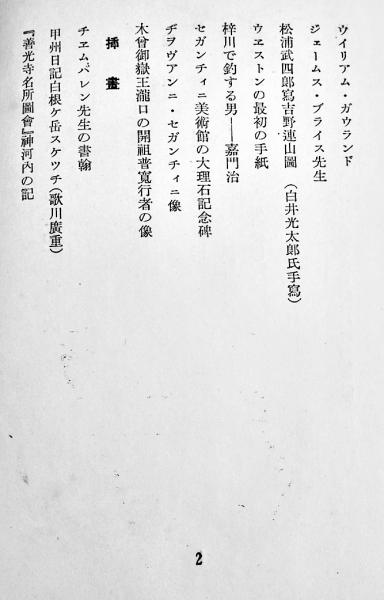 ウイリアム・ガウランド
ジェームス・ブライス先生
松浦武四郎寫吉野連山圖　(白井光太郎氏手寫)
ウエストンの最初の手紙
梓川で釣する男――嘉門治
セガンティニ美術館の大理石記念碑
ヂヲヴアンニ・セガンティニ像
木曾御嶽王瀧口の開祖普寬行者の像
挿畫
チエムバレン先生の書翰
甲州日記白根ケ岳スケッチ(歌川廣重)
『善光寺名所圖會』神河內の記
2